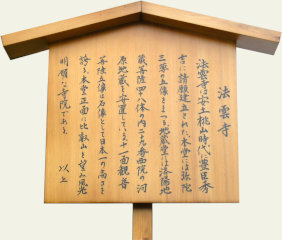 法雲寺
法雲寺は安土桃山時代、豊臣秀
吉に請願建立された本堂には弥陀
三尊の五像をまつる。地蔵堂には洛陽地
蔵菩薩四十八体の内二十九番西院の河
原地蔵を安置している十一面観音
菩薩立像は石像として日本一の高さを
誇る。本堂正面に比叡山を望み風光
明媚な寺院である。
以上